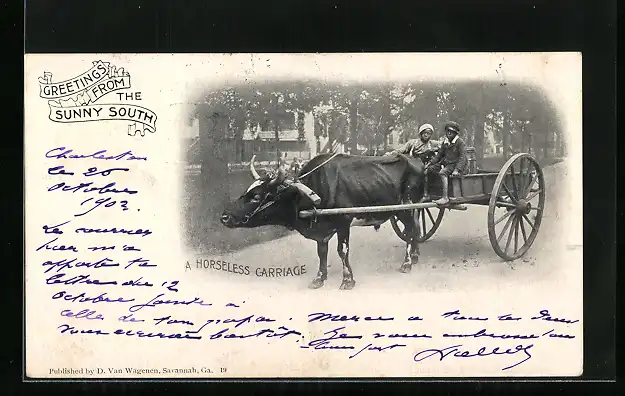 GREETINGS
FROM
THE
SUNNY SOUTH
Charleston
le 26
octobre
1902.
Le courrier
hier m'a
apporté ta
lettre du 12
octobre jointe à
celle de ton papa. Merci à tous les deux
vous bientôt. Je vous embrasse
fort
A HORSELESS CARRIAGE
Published by D. Van Wagenen, Savannah, Ga. 19